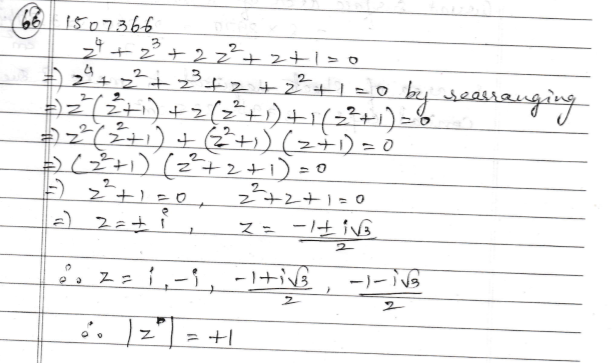 66 1507366
z⁴ + z³ + 2z² + z + 1 = 0
=) z⁴ + z² + z³ + z + z² + 1 = 0 by rearranging
=) z²(z²+1) + z(z²+1) + 1(z²+1) = 0
=) z²(z²+1) + (z²+1)(z+1) = 0
=) (z²+1)(z²+z+1) = 0
=) z²+1=0, z²+z+1=0
=) z=±i, z = (-1±i√3)/2
∴ z = i, -i, (-1+i√3)/2, (-1-i√3)/2
∴ |z| = +1